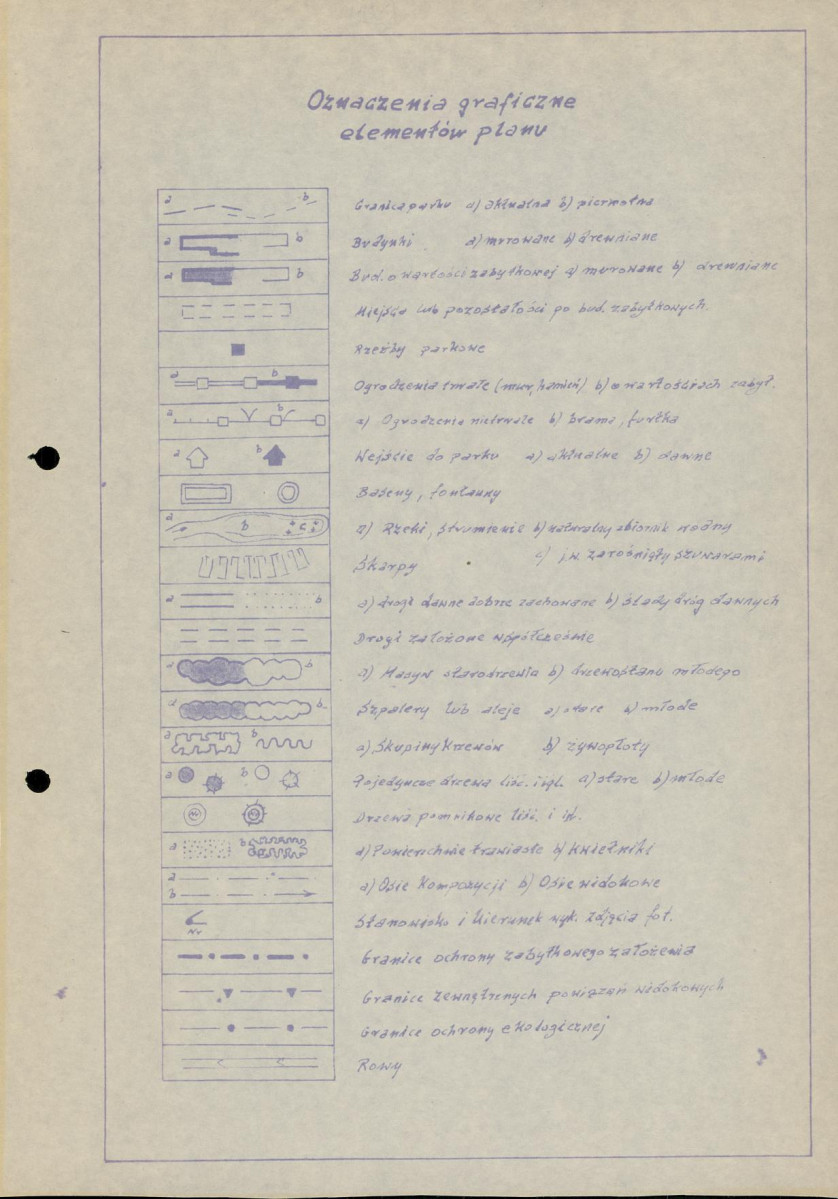 Oznaczenia graficzne
elementów planu
a b Granica parku a) aktualna b) pierwotna
a b Budynki a) murowane b) drewniane
a b Bud. o wartości zabytkowej a) murowane b) drewniane
Miejsca lub pozostałości po bud. zabytkowych.
Rzeźby parkowe
a b Ogrodzenia trwałe (mur, kamień) b) o wartościach zabyt.
a b a) Ogrodzenia nietrwałe b) brama, furtka
a b Wejście do parku a) aktualne b) dawne
Baseny, fontanny
a b c a) Rzeki, strumienie b) naturalny zbiornik wodny
c) j.w. zarośnięty szuwarami
Skarpy
a b a) drogi dawne dobrze zachowane b) ślady dróg dawnych
Drogi założone współcześnie
a b a) Masyw starodrzewia b) drzewostanu młodego
a b. Szpalery lub aleje a) stare b) młode
a b a) Skupiny krzewów b) żywopłoty
a b Pojedyncze drzewa liśc. i igl. a) stare b) młode
Drzewa pomnikowe liść. i ig.
a b a) Powierzchnie trawiaste b) kwietniki
a b a) Osie kompozycji b) Osie widokowe
Nr Stanowisko i kierunek wyk. zdjęcia fot.
Granice ochrony zabytkowego założenia
Granice zewnętrznych powiązań widokowych
Granice ochrony ekologicznej
Rowy